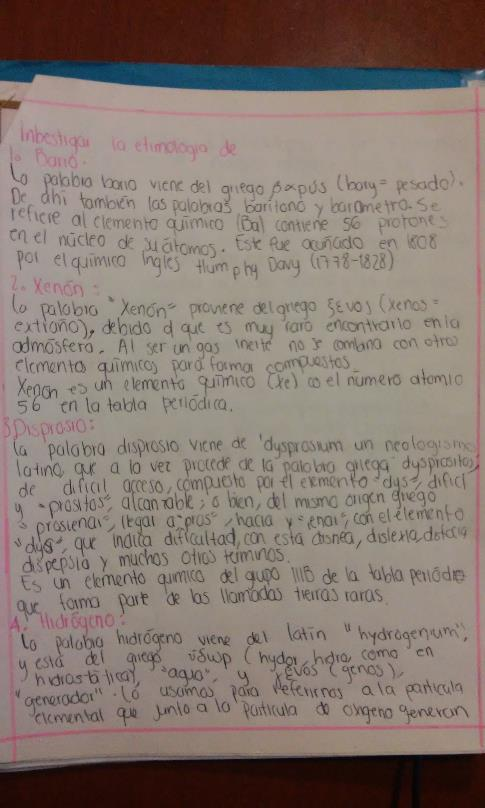 Inbestigar la etimologia de
1. Bario.
La palabra bario viene del griego βαρύς (bary= pesado).
De ahí también las palabras baritono y barometro. Se
refiere al elemento químico (Ba) contiene 56 protones
en el núcleo de su átomos. Este fue acuñado en 1808
por el químico ingles Humphy Davy (1778-1828)
2. Xenón:
La palabra "Xenón" proviene del griego ξενος (xenos=
extraño), debido a que es muy raro encontrarlo en la
admósfera. Al ser un gas inerte no se combina con otros
elementos químicos para formar compuestos.
Xenón es un elemento químico (Xe) es el número atomio
56 en la tabla periódica.
3. Disprosio:
La palabra disprosio viene de "dysprosium un neologismo
latino, que a la vez procede de la palabra griega dysprositos,
de dificil acceso, compuesto por el elemento "dys", dificil
y "prositos", alcanzable; o bien, del mismo origen griego
"prosienai", llegar a "pros", hacia y "enai", con el elemento
"dys", que indica dificultad, con esta disnea, dislexia,
dispepsia y muchos otros terminos.
Es un elemento quimico del grupo IIIB de la tabla periódic
que forma parte de las llamadas tierras raras.
4. Hidrógeno:
La palabra hidrógeno viene del latín "hydrogenium",
y esta del griego ύδωρ (hydor, hidra, como en
hidrostática), "agua", y γενος (genos),
"generador". Lo usamos para referirnos a la particula
elemental que junto a la particula de oxigeno generan